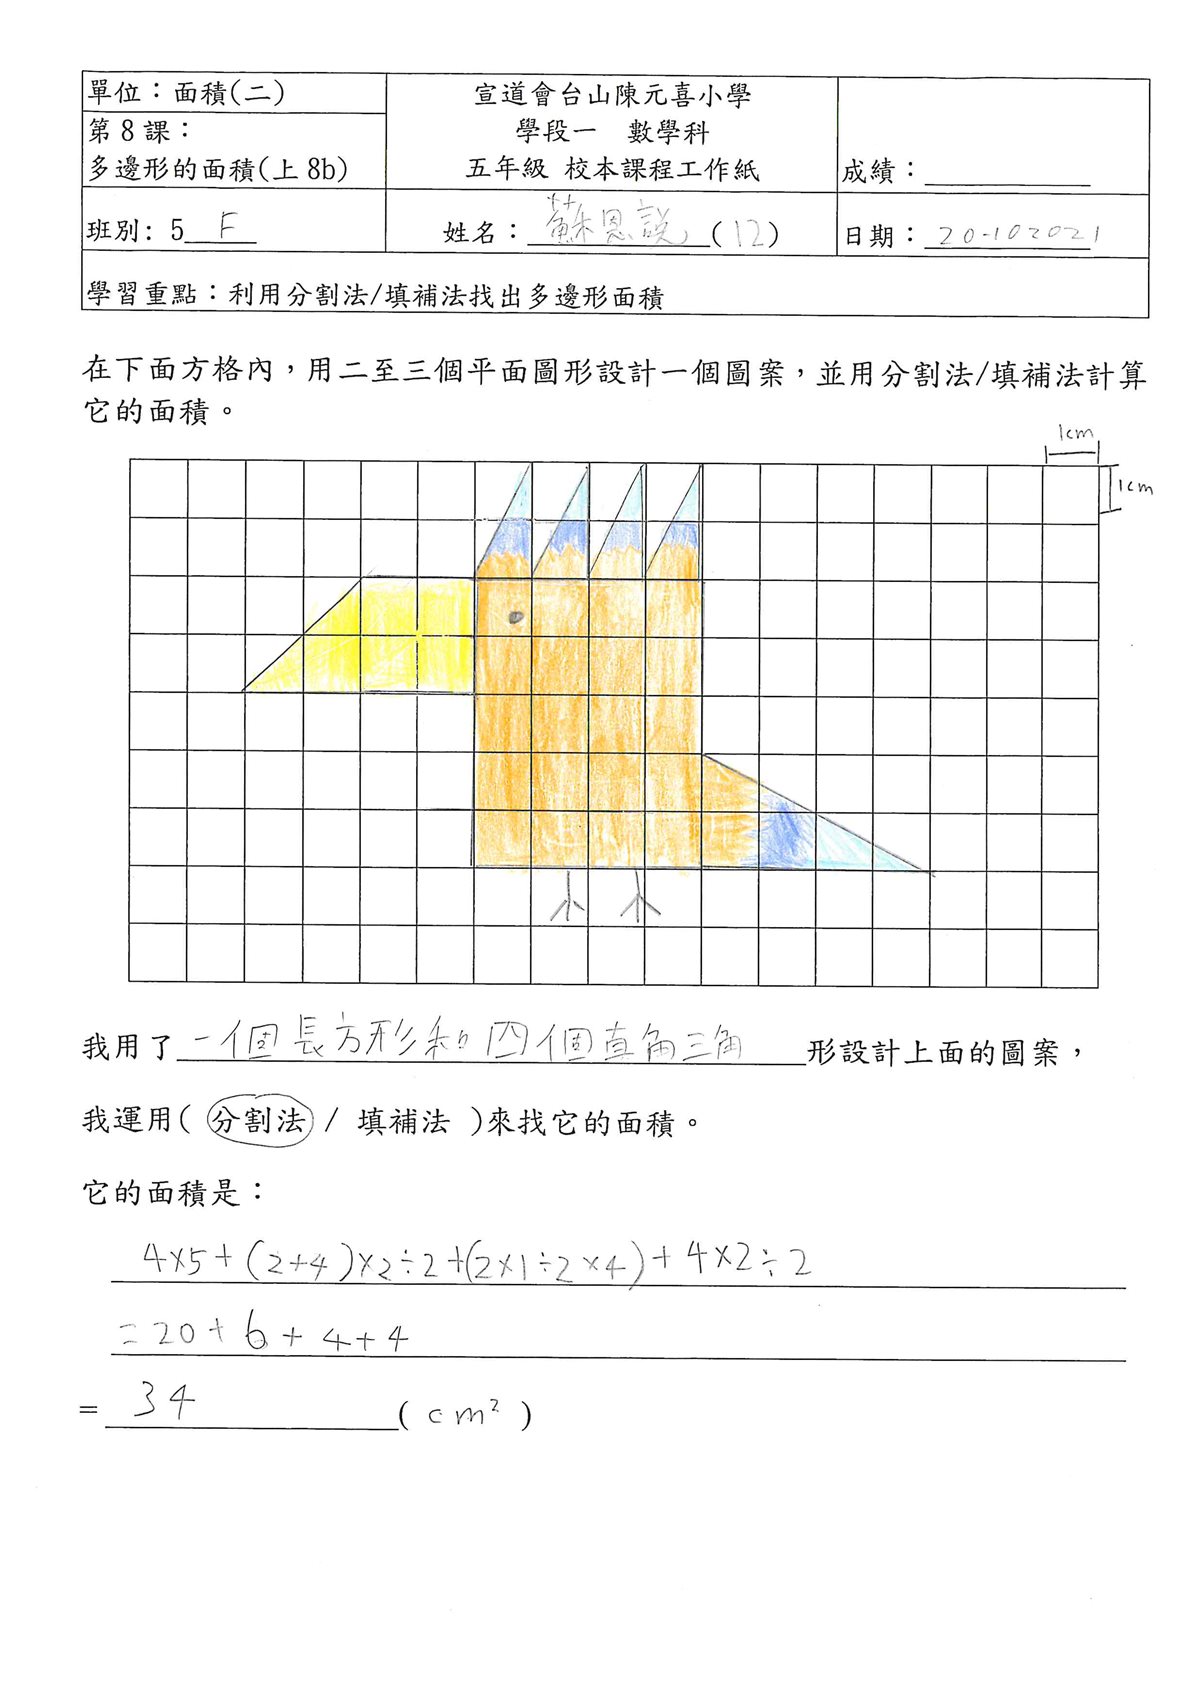 單位：面積(二)
第 8 課：
多邊形的面積(上 8b)
宣道會台山陳元喜小學
學段一　數學科
五年級 校本課程工作紙
成績：
班別: 5 F
姓名：蘇恩說 (12)
日期：20-102021
學習重點：利用分割法/填補法找出多邊形面積
在下面方格內，用二至三個平面圖形設計一個圖案，並用分割法/填補法計算
它的面積。
1cm
1cm
我用了一個長方形和四個直角三角形設計上面的圖案，
我運用( 分割法 / 填補法 )來找它的面積。
它的面積是：
4×5+(2+4)×2÷2+(2×1÷2×4)+4×2÷2
=20+6+4+4
= 34 (cm²)